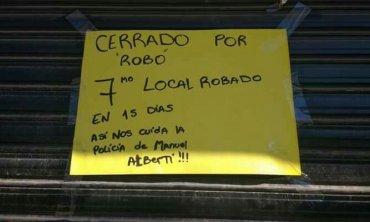 CERRADO POR
'ROBO'
7mo LOCAL ROBADO
EN 15 DÍAS
ASÍ NOS CUIDA LA
POLICÍA DE MANUEL
ALBERTI !!!